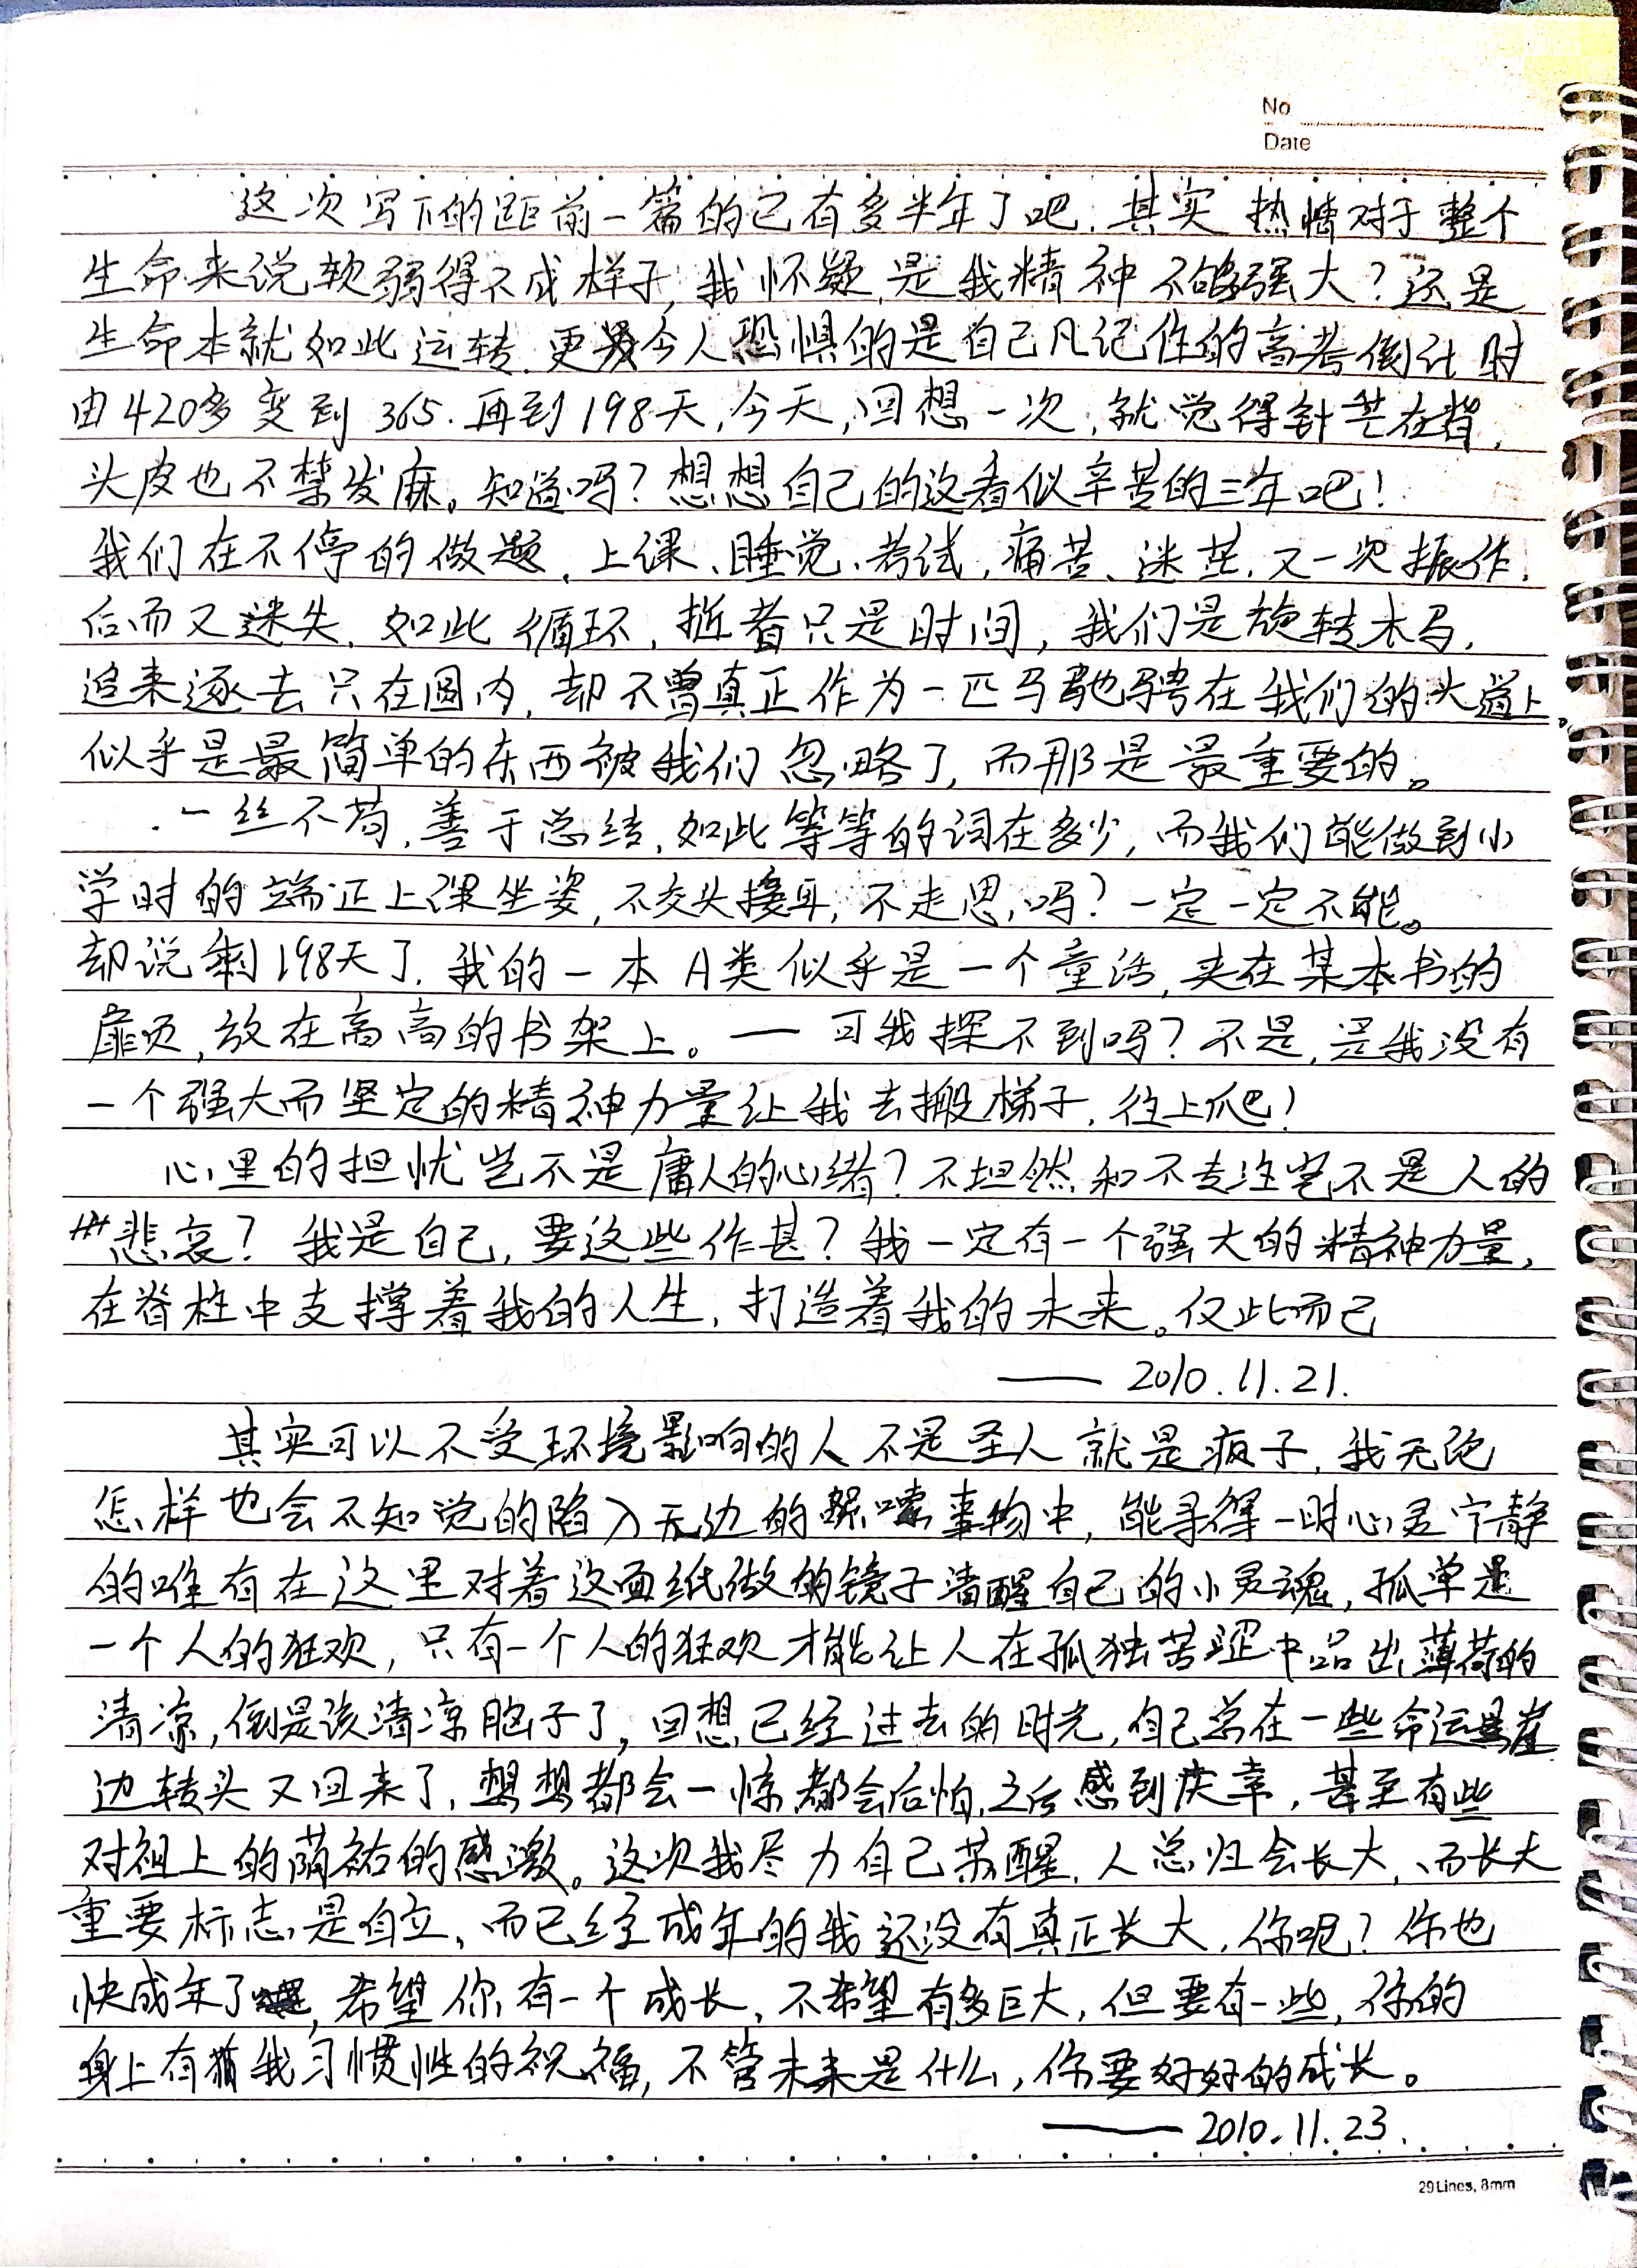 No
Date
这次写下的距前一篇的已有多半年了吧.其实 热情对于整个
生命来说软弱得不成样子,我怀疑,是我精神不够强大?还是
生命本就如此运转.更令人恐惧的是自己凡记住的高考倒计时
由420多变到365.再到198天,今天,回想一次,就觉得针芒在背,
头皮也不禁发麻。知道吗?想想自己的这看似辛苦的三年吧!
我们在不停的做题、上课、睡觉、考试,痛苦、迷茫,又一次振作,
后而又迷失,如此循环,逝者只是时间,我们是旋转木马,
追来逐去只在圈内,却不曾真正作为一匹马驰骋在我们的大道上。
似乎是最简单的东西被我们忽略了,而那是最重要的。
一丝不苟,善于总结,如此等等的词在多少,而我们能做到小
学时的端正上课坐姿,不交头接耳,不走思,吗?一定一定不能。
却说剩198天了,我的一本A类似乎是一个童话,夹在某本书的
扉页,放在高高的书架上。一可我探不到吗?不是,是我没有
一个强大而坚定的精神力量让我去搬梯子,往上爬!
心里的担忧岂不是庸人的心绪?不坦然和不专注岂不是人的
悲哀?我是自己,要这些作甚?我一定有一个强大的精神力量,
在脊柱中支撑着我的人生,打造着我的未来。仅此而已
—— 2010.11.21.
其实可以不受环境影响的人不是圣人就是疯子,我无论
怎样也会不知觉的陷入无边的琐事物中,能寻得一时心灵宁静
的唯有在这里对着这面纸做的镜子清醒自己的小灵魂,孤单是
一个人的狂欢,只有一个人的狂欢才能让人在孤独苦涩中品出薄荷的
清凉,倒是该清凉脑子了,回想已经过去的时光,自己总在一些命运悬崖
边转头又回来了,想想都会一惊都会后怕,之后感到庆幸,甚至有些
对祖上的荫祐的感激。这次我尽力自己苏醒,人总归会长大,而长大
重要标志是自立,而已经成年的我还没有真正长大,你呢?你也
快成年了,希望你有一个成长,不希望有多巨大,但要有一些,你的
身上有着我习惯性的祝福,不管未来是什么,你要好好的成长。
—— 2010.11.23.
29Lines, 8mm